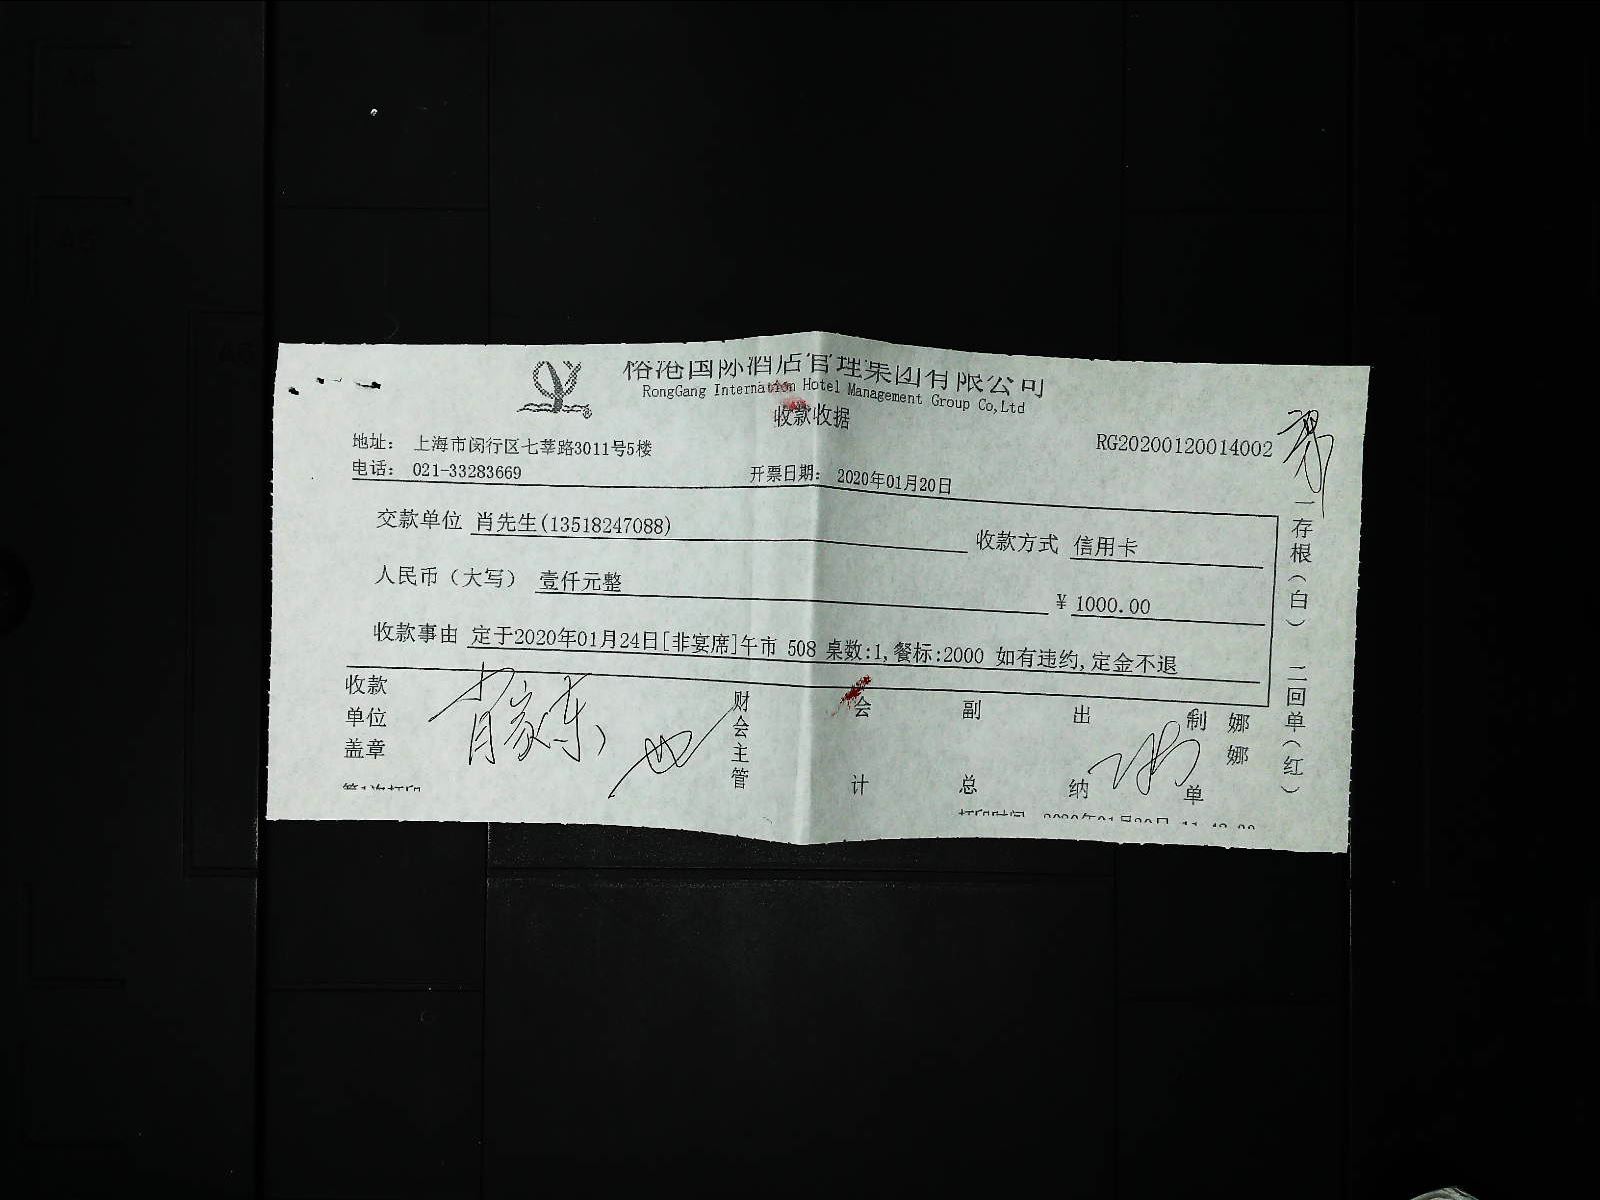 国际酒店管理集团有限公司
RongGang Internation Hotel Management Group Co,Ltd
收款收据
地址： 上海市闵行区七莘路3011号5楼
RG20200120014002
电话： 021-33283669 开票日期： 2020年01月20日
交款单位 肖先生(13518247088) 收款方式 信用卡
人民币（大写） 壹仟元整 ¥ 1000.00
收款事由 定于2020年01月24日[非宴席]午市 508 桌数:1,餐标:2000 如有违约,定金不退
收款单位盖章 财会主管 会计 副总 出纳 制单 娜娜
一存根（白） 二回单（红）
第1次打印
打印时间 2020年01月20日